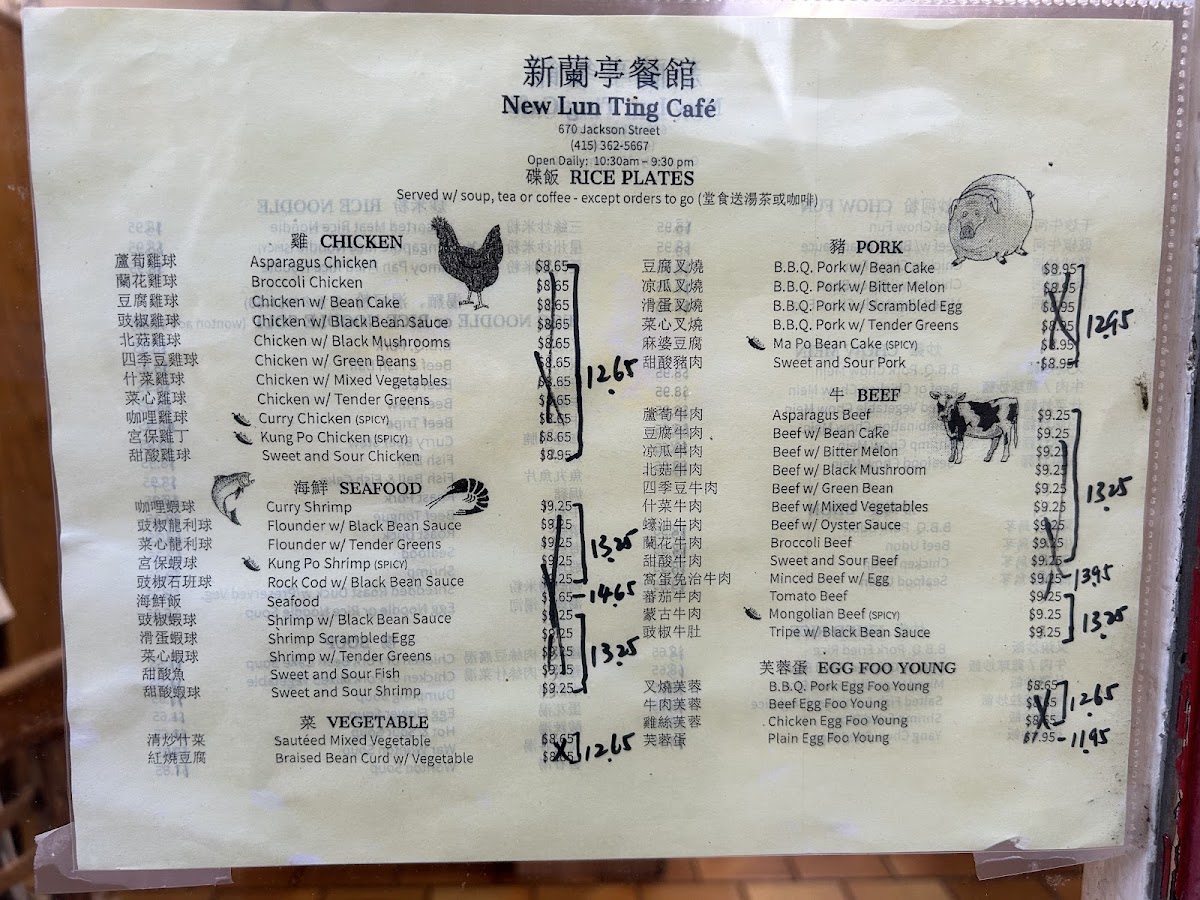 新蘭亭餐館
New Lun Ting Café
670 Jackson Street
(415) 362-5667
Open Daily: 10:30am – 9:30 pm
碟飯 RICE PLATES
Served w/ soup, tea or coffee - except orders to go (堂食送湯茶或咖啡)
雞 CHICKEN
蘆荀雞球 Asparagus Chicken $8.65
蘭花雞球 Broccoli Chicken $8.65
豆腐雞球 Chicken w/ Bean Cake $8.65
豉椒雞球 Chicken w/ Black Bean Sauce $8.65
北菇雞球 Chicken w/ Black Mushrooms $8.65
四季豆雞球 Chicken w/ Green Beans $8.65
什菜雞球 Chicken w/ Mixed Vegetables $8.65
菜心雞球 Chicken w/ Tender Greens $8.65
咖哩雞球 Curry Chicken (SPICY) $8.65
宮保雞丁 Kung Po Chicken (SPICY) $8.65
甜酸雞球 Sweet and Sour Chicken $8.95
12.65
海鮮 SEAFOOD
咖哩蝦球 Curry Shrimp $9.25
豉椒龍利球 Flounder w/ Black Bean Sauce $9.25
菜心龍利球 Flounder w/ Tender Greens $9.25
宮保蝦球 Kung Po Shrimp (SPICY) $9.25
豉椒石班球 Rock Cod w/ Black Bean Sauce $9.25
13.25
海鮮飯 Seafood $9.65 – 14.65
豉椒蝦球 Shrimp w/ Black Bean Sauce $9.25
滑蛋蝦球 Shrimp Scrambled Egg $9.25
菜心蝦球 Shrimp w/ Tender Greens $9.25
甜酸魚 Sweet and Sour Fish $9.25
甜酸蝦球 Sweet and Sour Shrimp $9.25
13.25
菜 VEGETABLE
清炒什菜 Sautéed Mixed Vegetable $8.65
紅燒豆腐 Braised Bean Curd w/ Vegetable $8.65
12.65
豬 PORK
豆腐叉燒 B.B.Q. Pork w/ Bean Cake $8.95
凉瓜叉燒 B.B.Q. Pork w/ Bitter Melon $8.95
滑蛋叉燒 B.B.Q. Pork w/ Scrambled Egg $8.95
菜心叉燒 B.B.Q. Pork w/ Tender Greens $8.95
麻婆豆腐 Ma Po Bean Cake (SPICY) $8.95
甜酸豬肉 Sweet and Sour Pork $8.95
12.95
牛 BEEF
蘆荀牛肉 Asparagus Beef $9.25
豆腐牛肉 Beef w/ Bean Cake $9.25
凉瓜牛肉 Beef w/ Bitter Melon $9.25
北菇牛肉 Beef w/ Black Mushroom $9.25
四季豆牛肉 Beef w/ Green Bean $9.25
什菜牛肉 Beef w/ Mixed Vegetables $9.25
蠔油牛肉 Beef w/ Oyster Sauce $9.25
蘭花牛肉 Broccoli Beef $9.25
甜酸牛肉 Sweet and Sour Beef $9.25
13.25
窩蛋免治牛肉 Minced Beef w/ Egg $9.25 – 13.95
蕃茄牛肉 Tomato Beef $9.25
蒙古牛肉 Mongolian Beef (SPICY) $9.25
豉椒牛肚 Tripe w/ Black Bean Sauce $9.25
13.25
芙蓉蛋 EGG FOO YOUNG
叉燒芙蓉 B.B.Q. Pork Egg Foo Young $8.65
牛肉芙蓉 Beef Egg Foo Young $8.65
雞絲芙蓉 Chicken Egg Foo Young $8.65
12.65
芙蓉蛋 Plain Egg Foo Young $7.95 – 11.95